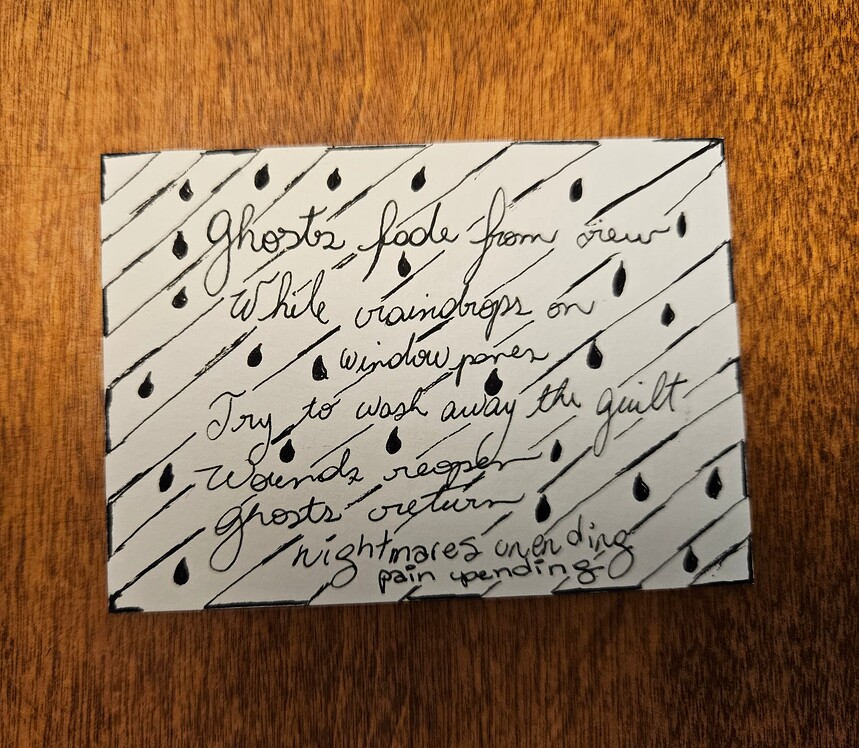 Ghosts fade from view
While raindrops on
window panes
Try to wash away the guilt
Wounds reopen
Ghosts return
nightmares unending
pain upending